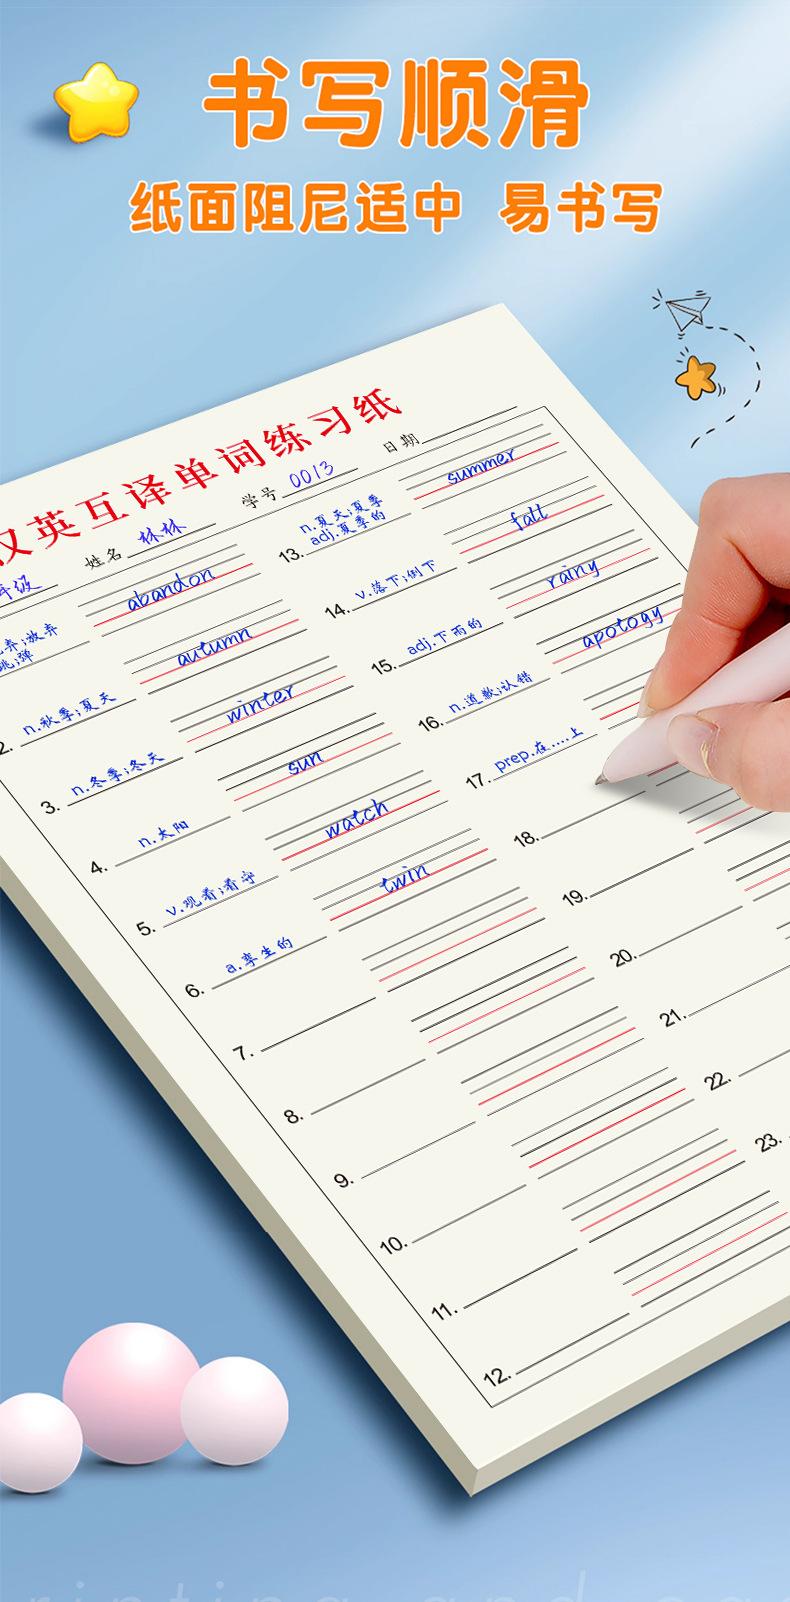 书写顺滑
纸面阻尼适中 易书写
汉英互译单词练习纸
年级 姓名 林林 学号 0013 日期
弃;放弃 abandon
2. n.秋季;夏天 autumn
3. n.冬季;冬天 winter
4. n.太阳 sun
5. v.观看;看守 watch
6. a.孪生的 twin
7.
8.
9.
10.
11.
12.
13. n.夏天;夏季
adj.夏季的 summer
14. v.落下;倒下 fall
15. adj.下雨的 rainy
16. n.道歉;认错 apology
17. prep.在....上
18.
19.
20.
21.
22.
23.